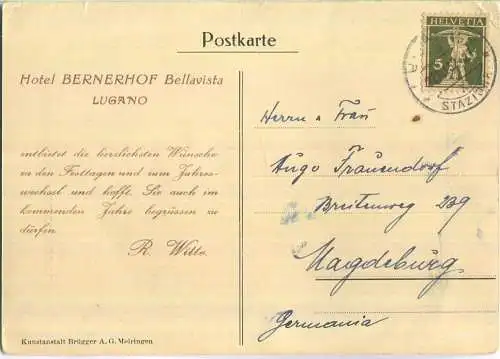 Postkarte
Hotel BERNERHOF Bellavista
LUGANO
entbietet die herzlichsten Wünsche
zu den Festtagen und zum Jahres-
wechsel und hofft, Sie auch im
kommenden Jahre begrüssen zu
dürfen.
R. Witto.
Kunstanstalt Brügger A. G. Meiringen
HELVETIA
5
STAZIONE
Herrn u Frau
Hugo Frauendorf
Breiteweg 239
Magdeburg
Germania